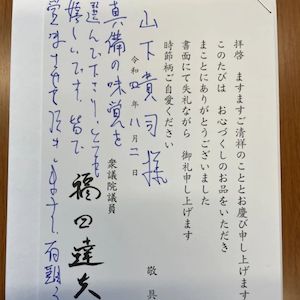 拝啓　ますますご清祥のこととお慶び申し上げます
このたびは　お心づくしのお品をいただき
まことにありがとうございました
書面にて失礼ながら　御礼申し上げます
時節柄ご自愛ください
敬具
山下貴司様
令和　年八月二日
衆議院議員
福田達夫
真備の味覚を
選んで下さり、とても
嬉しいです。皆で
賞味させて頂きます。